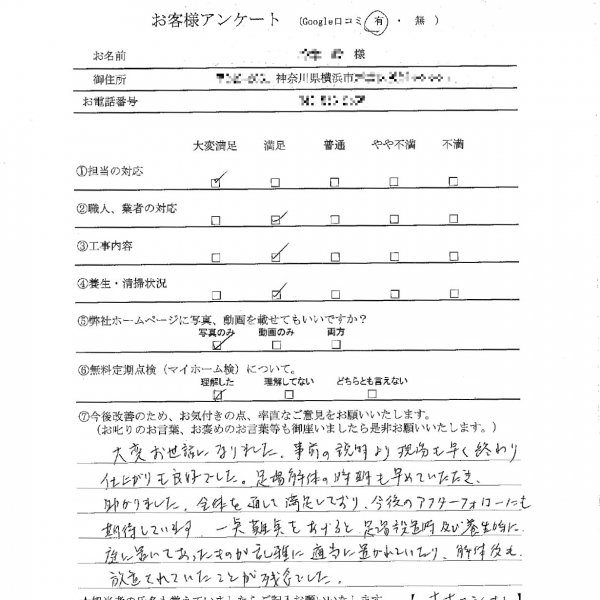 お客様アンケート (Google口コミ 有 ・ 無 )
お名前 様
御住所 神奈川県横浜市
お電話番号
大変満足 満足 普通 やや不満 不満
①担当の対応
②職人、業者の対応
③工事内容
④養生・清掃状況
⑤弊社ホームページに写真、動画を載せてもいいですか？
写真のみ 動画のみ 両方
⑥無料定期点検（マイホーム検）について。
理解した 理解してない どちらとも言えない
⑦今後改善のため、お気付きの点、率直なご意見をお願いいたします。
（お叱りのお言葉、お褒めのお言葉等も御座いましたら是非お願いします。）
大変お世話になりました。事前の説明より現場も早く終わり
仕上がりも良好でした。足場解体の時期も早めていただき、
助かりました。全体を通して満足しており、今後のアフターフォローにも
期待しています。一点難点をあげると足場設置時及び養生時に、
庭に置いてあったものが乱雑に適当に置かれていたり、解体後も
放置されていたことが残念でした。